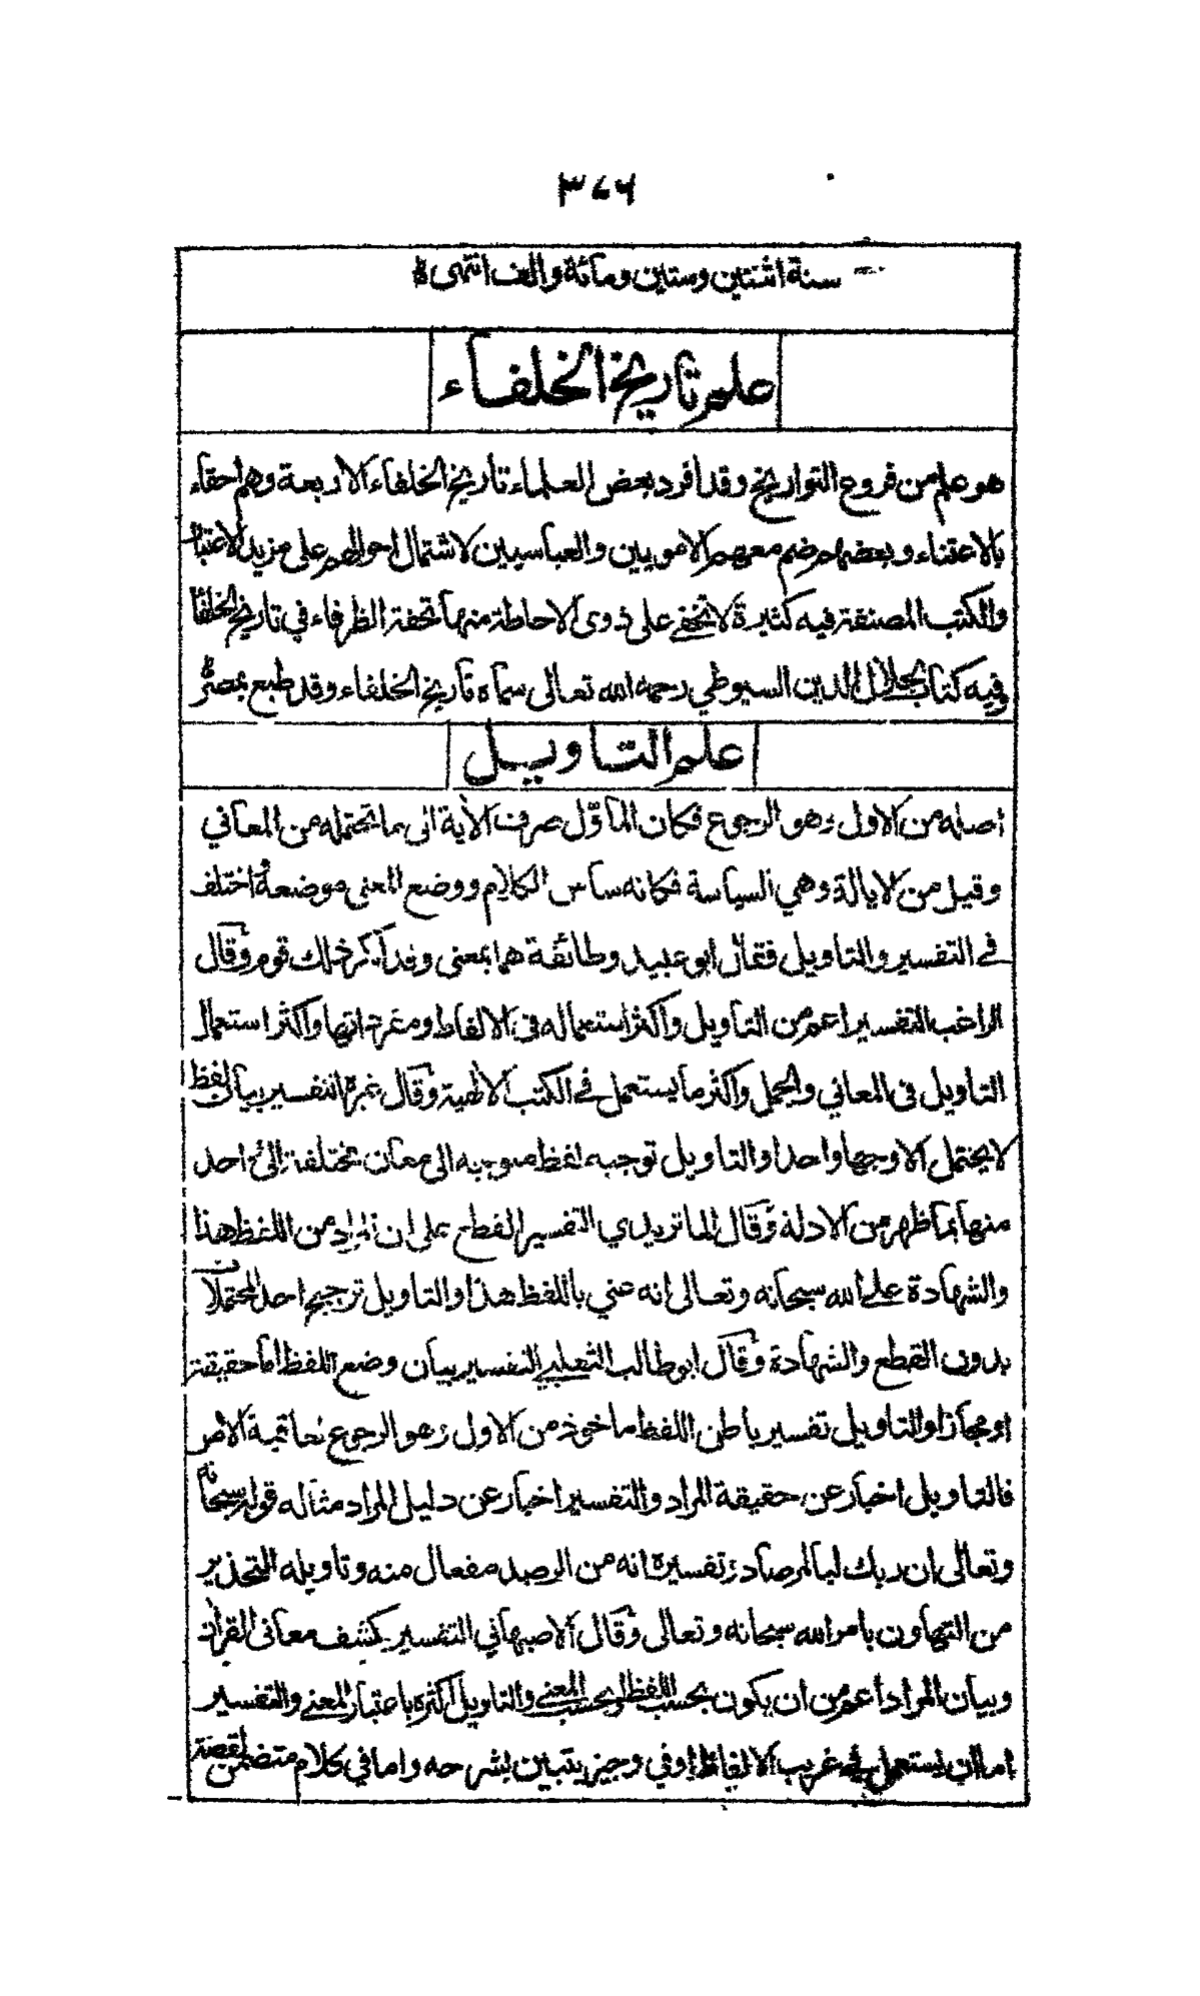 ٣٧٦
سنة اثنتين وستين ومائة والف انتهى
علم تاريخ الخلفاء
هو علم من فروع التواريخ وقد افرد بعض العلماء تاريخ الخلفاء الاربعة وهم احقاء
بالاعتناء وبعضهم ضم معهم الامويين والعباسيين لاشتمال احوالهم على مزيد الاعتبار
والكتب المصنفة فيه كثيرة لا تخفى على ذوى الاحاطة منها تحفة الظرفاء في تاريخ الخلفا
وفيه كتاب لجلال الدين السيوطي رحمه الله تعالى سماه تاريخ الخلفاء وقد طبع بمصر
علم التاويل
اصله من الاول وهو الرجوع فكان المأوّل صرف الآية الى ما تحتمله من المعاني
وقيل من الايالة وهي السياسة فكانه ساس الكلام ووضع المعنى موضعه اختلف
في التفسير والتاويل فقال ابو عبيد وطائفة هما بمعنى وقد انكر ذلك قوم وقال
الراغب التفسير اعم من التاويل واكثر استعماله في الالفاظ ومفرداتها واكثر استعمال
التاويل في المعاني والجمل واكثر ما يستعمل في الكتب الالهية وقال غيره التفسير بيان لفظ
لا يحتمل الا وجها واحدا والتاويل توجيه لفظ متوجه الى معان مختلفة الى واحد
منها بما ظهر من الادلة وقال الماتريدي التفسير القطع على ان المراد من اللفظ هذا
والشهادة على الله سبحانه وتعالى انه عني باللفظ هذا والتاويل ترجيح احد المحتملات
بدون القطع والشهادة وقال ابو طالب الثعلبي التفسير بيان وضع اللفظ اما حقيقة
او مجازا والتاويل تفسير باطن اللفظ ماخوذ من الاول وهو الرجوع لعاقبة الامر
فالتاويل اخبار عن حقيقة المراد والتفسير اخبار عن دليل المراد مثاله قوله سبحانه
وتعالى ان ربك لبالمرصاد تفسيره انه من الرصد مفعال منه وتاويله التحذير
من التهاون بامر الله سبحانه وتعالى وقال الاصبهاني التفسير كشف معاني القرآن
وبيان المراد اعم من ان يكون بحسب اللفظ او بحسب المعنى والتاويل اكثره باعتبار المعنى والتفسير
اما ان يستعمل في غريب الالفاظ او في وجيز يتبين بشرحه واما في كلام متضمن لقصة